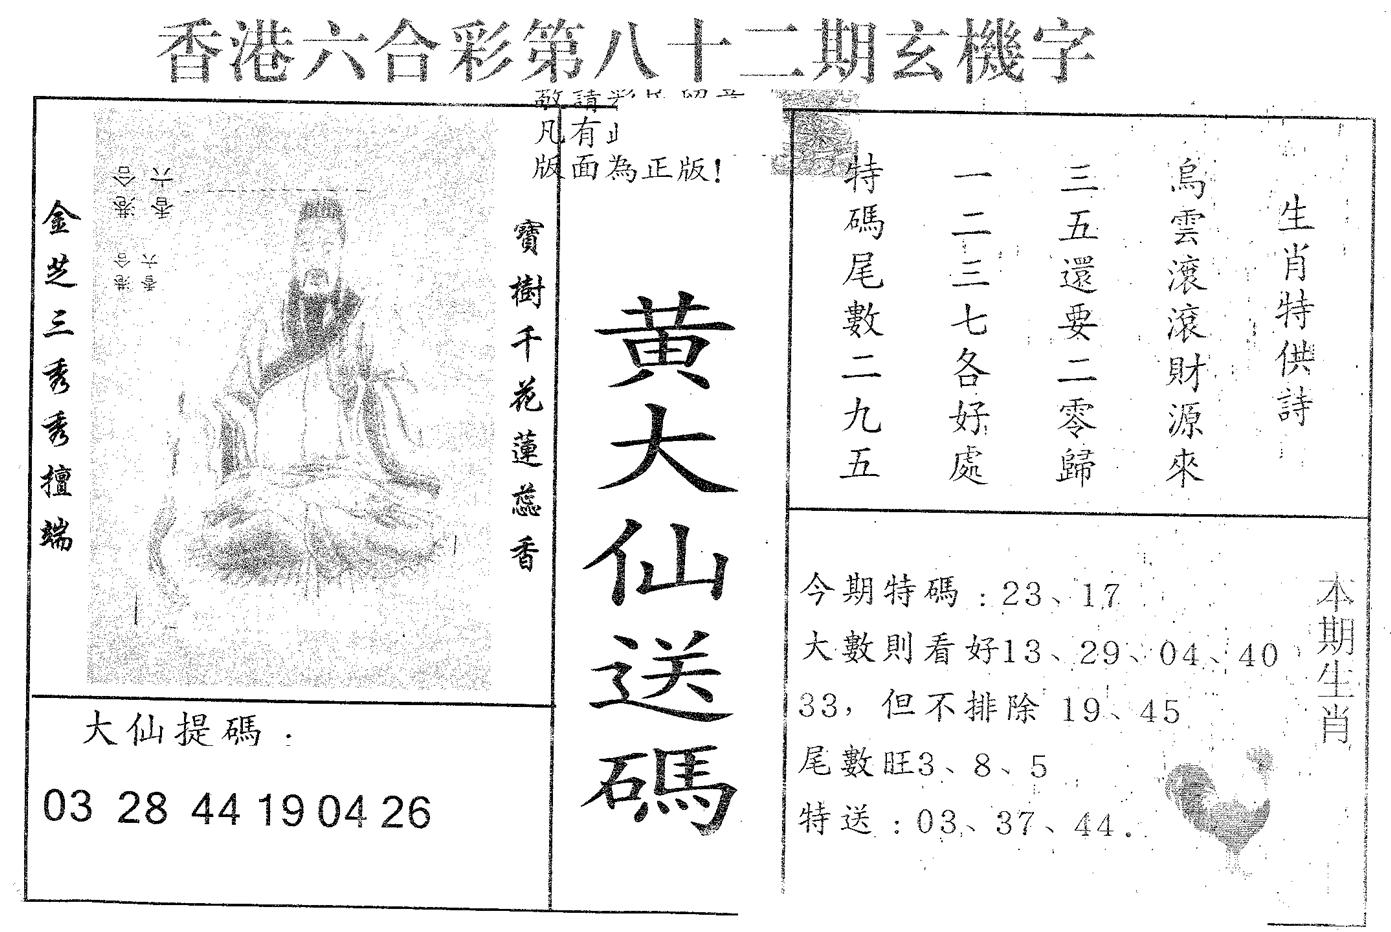 香港六合彩第八十二期玄機字
敬請彩民留意
凡有
版面為正版!
金芝三秀秀擅端
寶樹千花蓮蕊香
香港六合
香港六合
黃大仙送碼
大仙提碼:
03 28 44 19 04 26
生肖特供詩
烏雲滾滾財源來
三五還要二零歸
一二三七各好處
特碼尾數二九五
今期特碼:23、17
大數則看好13、29、04、40
33,但不排除 19、45
尾數旺3、8、5
特送:03、37、44.
本期生肖